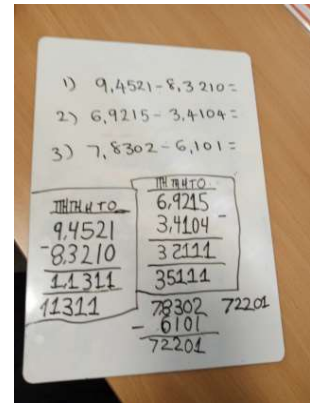 1) 9,4521-8,3210=
2) 6,9215-3,4104=
3) 7,8302-6,101=
TTHTHHTO
9,4521
-8,3210
1,1311
11311
TTHTHHTO
6,9215
3,4104 -
32111
35111
78302 72201
- 6101
72201